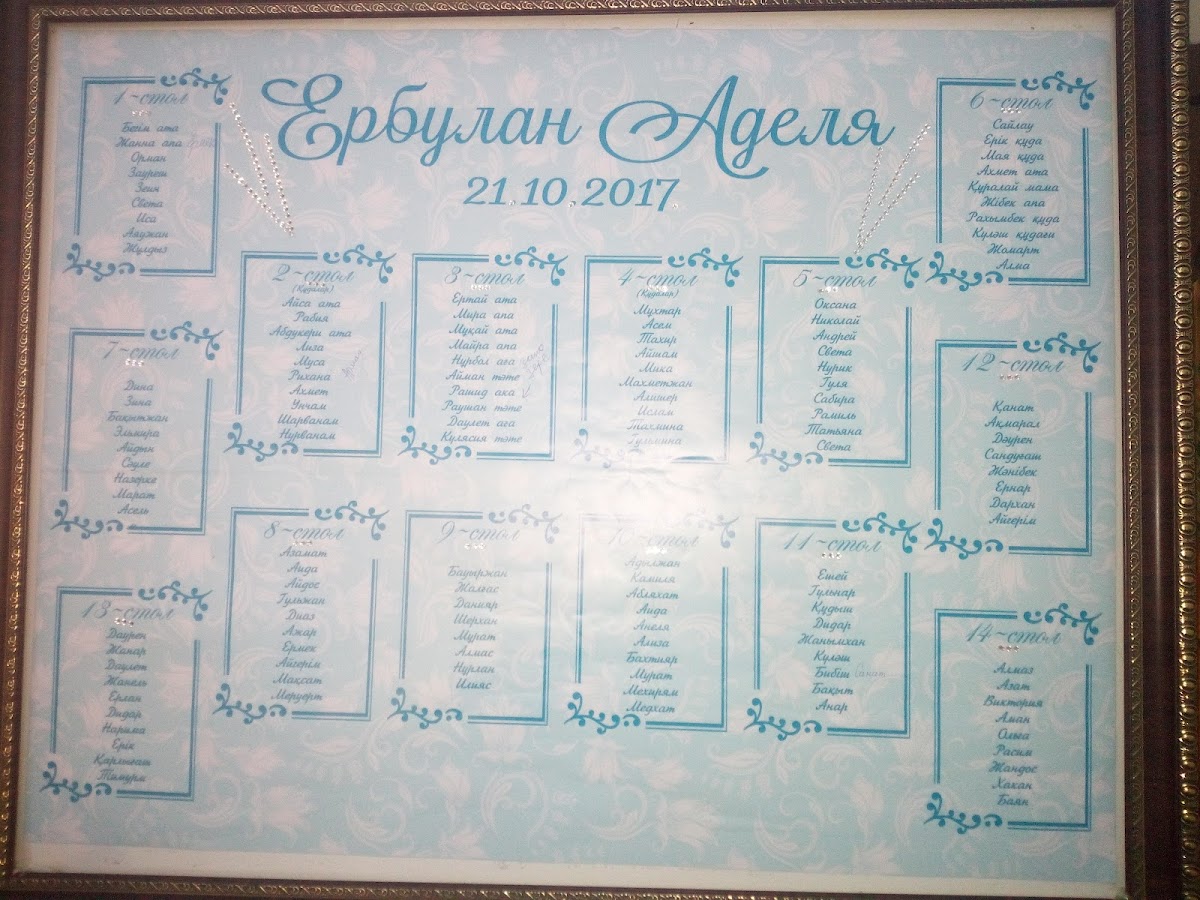 Ербулан Аделя
21.10.2017
1-стол
Бегім ата
Жанна апа
Орман
Зауреш
Зеин
Света
Иса
Аяужан
Жулдыз
2-стол
(Кудалар)
Айса ата
Рабия
Абдукери ата
Лиза
Муса
Рихана
Ахмет
Унчам
Шарванам
Нурванам
3-стол
Ертай ата
Мира апа
Мұқай ата
Майра апа
Нұрбол аға
Айман тәте
Рашид ака
Раушан тәте
Даулет аға
Кулясия тәте
4-стол
(Кудалар)
Мухтар
Асем
Тахир
Айшам
Мика
Махметжан
Алишер
Ислам
Тахмина
Гульмина
5-стол
Оксана
Николай
Андрей
Света
Нурик
Гуля
Сабира
Рамиль
Татьяна
Света
6-стол
Сайлау
Ерік құда
Мая құда
Ахмет ата
Құралай мама
Жібек апа
Рахымбек құда
Күләш құдағи
Жомарт
Алма
7-стол
Дина
Зина
Бақытжан
Эльмира
Айдын
Сәуле
Назерке
Марат
Асель
8-стол
Азамат
Аида
Айдос
Гульжан
Диаз
Ажар
Ермек
Айгерім
Мақсат
Меруерт
9-стол
Бауыржан
Жалғас
Данияр
Шерхан
Мурат
Алмас
Нұрлан
Илияс
10-стол
Адылжан
Камиля
Абляхат
Аида
Анеля
Ализа
Бахтияр
Мурат
Мехирям
Медхат
11-стол
Ешей
Гульнар
Құдыш
Дидар
Жанымхан
Күләш
Бибіш Санат
Бақыт
Анар
12-стол
Қанат
Ақмарал
Дәурен
Сандуғаш
Жәнібек
Ернар
Дархан
Айгерім
13-стол
Даурен
Жанар
Даулет
Жанель
Ерлан
Дидар
Нарима
Ерік
Қарлығаш
Тимурм
14-стол
Алмаз
Азат
Виктория
Аман
Ольга
Расим
Жандос
Хакан
Баян